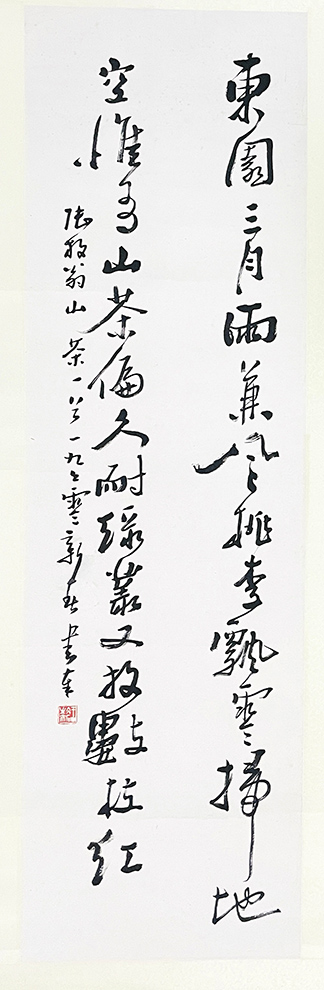 東園三月雨兼風桃李飄零掃地
空惟有山茶偏久耐綠叢又放數枝紅
陸放翁山茶一首一九零新春書奉